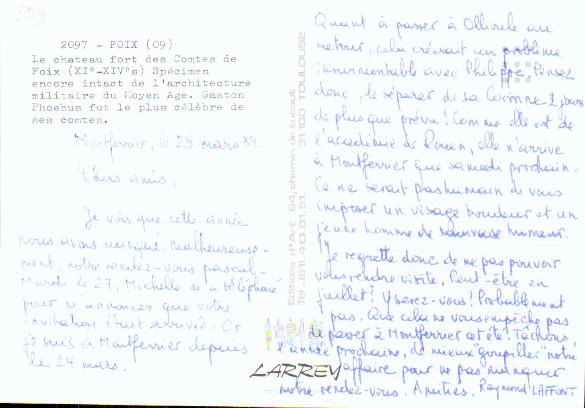 2097 - FOIX (09)
Le chateau fort des Comtes de
Foix (XI°-XIV°s) Spécimen
encore intact de l'architecture
militaire du Moyen Age. Gaston
Phoebus fut le plus célèbre de
ses comtes.
Montferrier, le 29 mars 84.
Chers amis,
Je vois que cette année
nous avons manqué, malheureuse-
ment, notre rendez-vous pascal.
Mardi le 27, Michelle m'a téléphoné
pour m'annoncer que votre
invitation était arrivée. Or
je suis à Montferrier depuis
le 24 mars.
Editions d'Art 64, chemin de
31100 TOULOUSE
Tél. (61) 40.01.51.
LARREY
Quant à passer à Ollioule au
retour, cela créerait un problème
insurmontable avec Philippe. Pensez
donc, le séparer de sa Corinne 2 jours
de plus que prévu! Comme elle est de
l'académie de Rouen, elle n'arrive
à Montferrier que samedi prochain.
Ce ne serait pas humain de vous
imposer un visage boudeur et un
jeune homme de mauvaise humeur.
Je regrette donc de ne pas pouvoir
vous rendre visite. Peut-être en
juillet? Y serez-vous? Probablement
pas. Que cela ne vous empêche pas
de passer à Montferrier cet été. Tâchons
l'année prochaine, de mieux goupiller notre
affaire pour ne pas manquer
notre rendez-vous. Amitiés. Raymond LAFFONT.